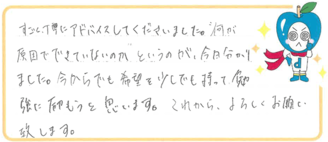 すごく丁寧にアドバイスしてくださいました。“何が
原因でできていないのか”というのが、今日分かり
ました。今からでも希望を少しでも持って勉
強に励もうと思います。これから、よろしくお願い
致します。
d